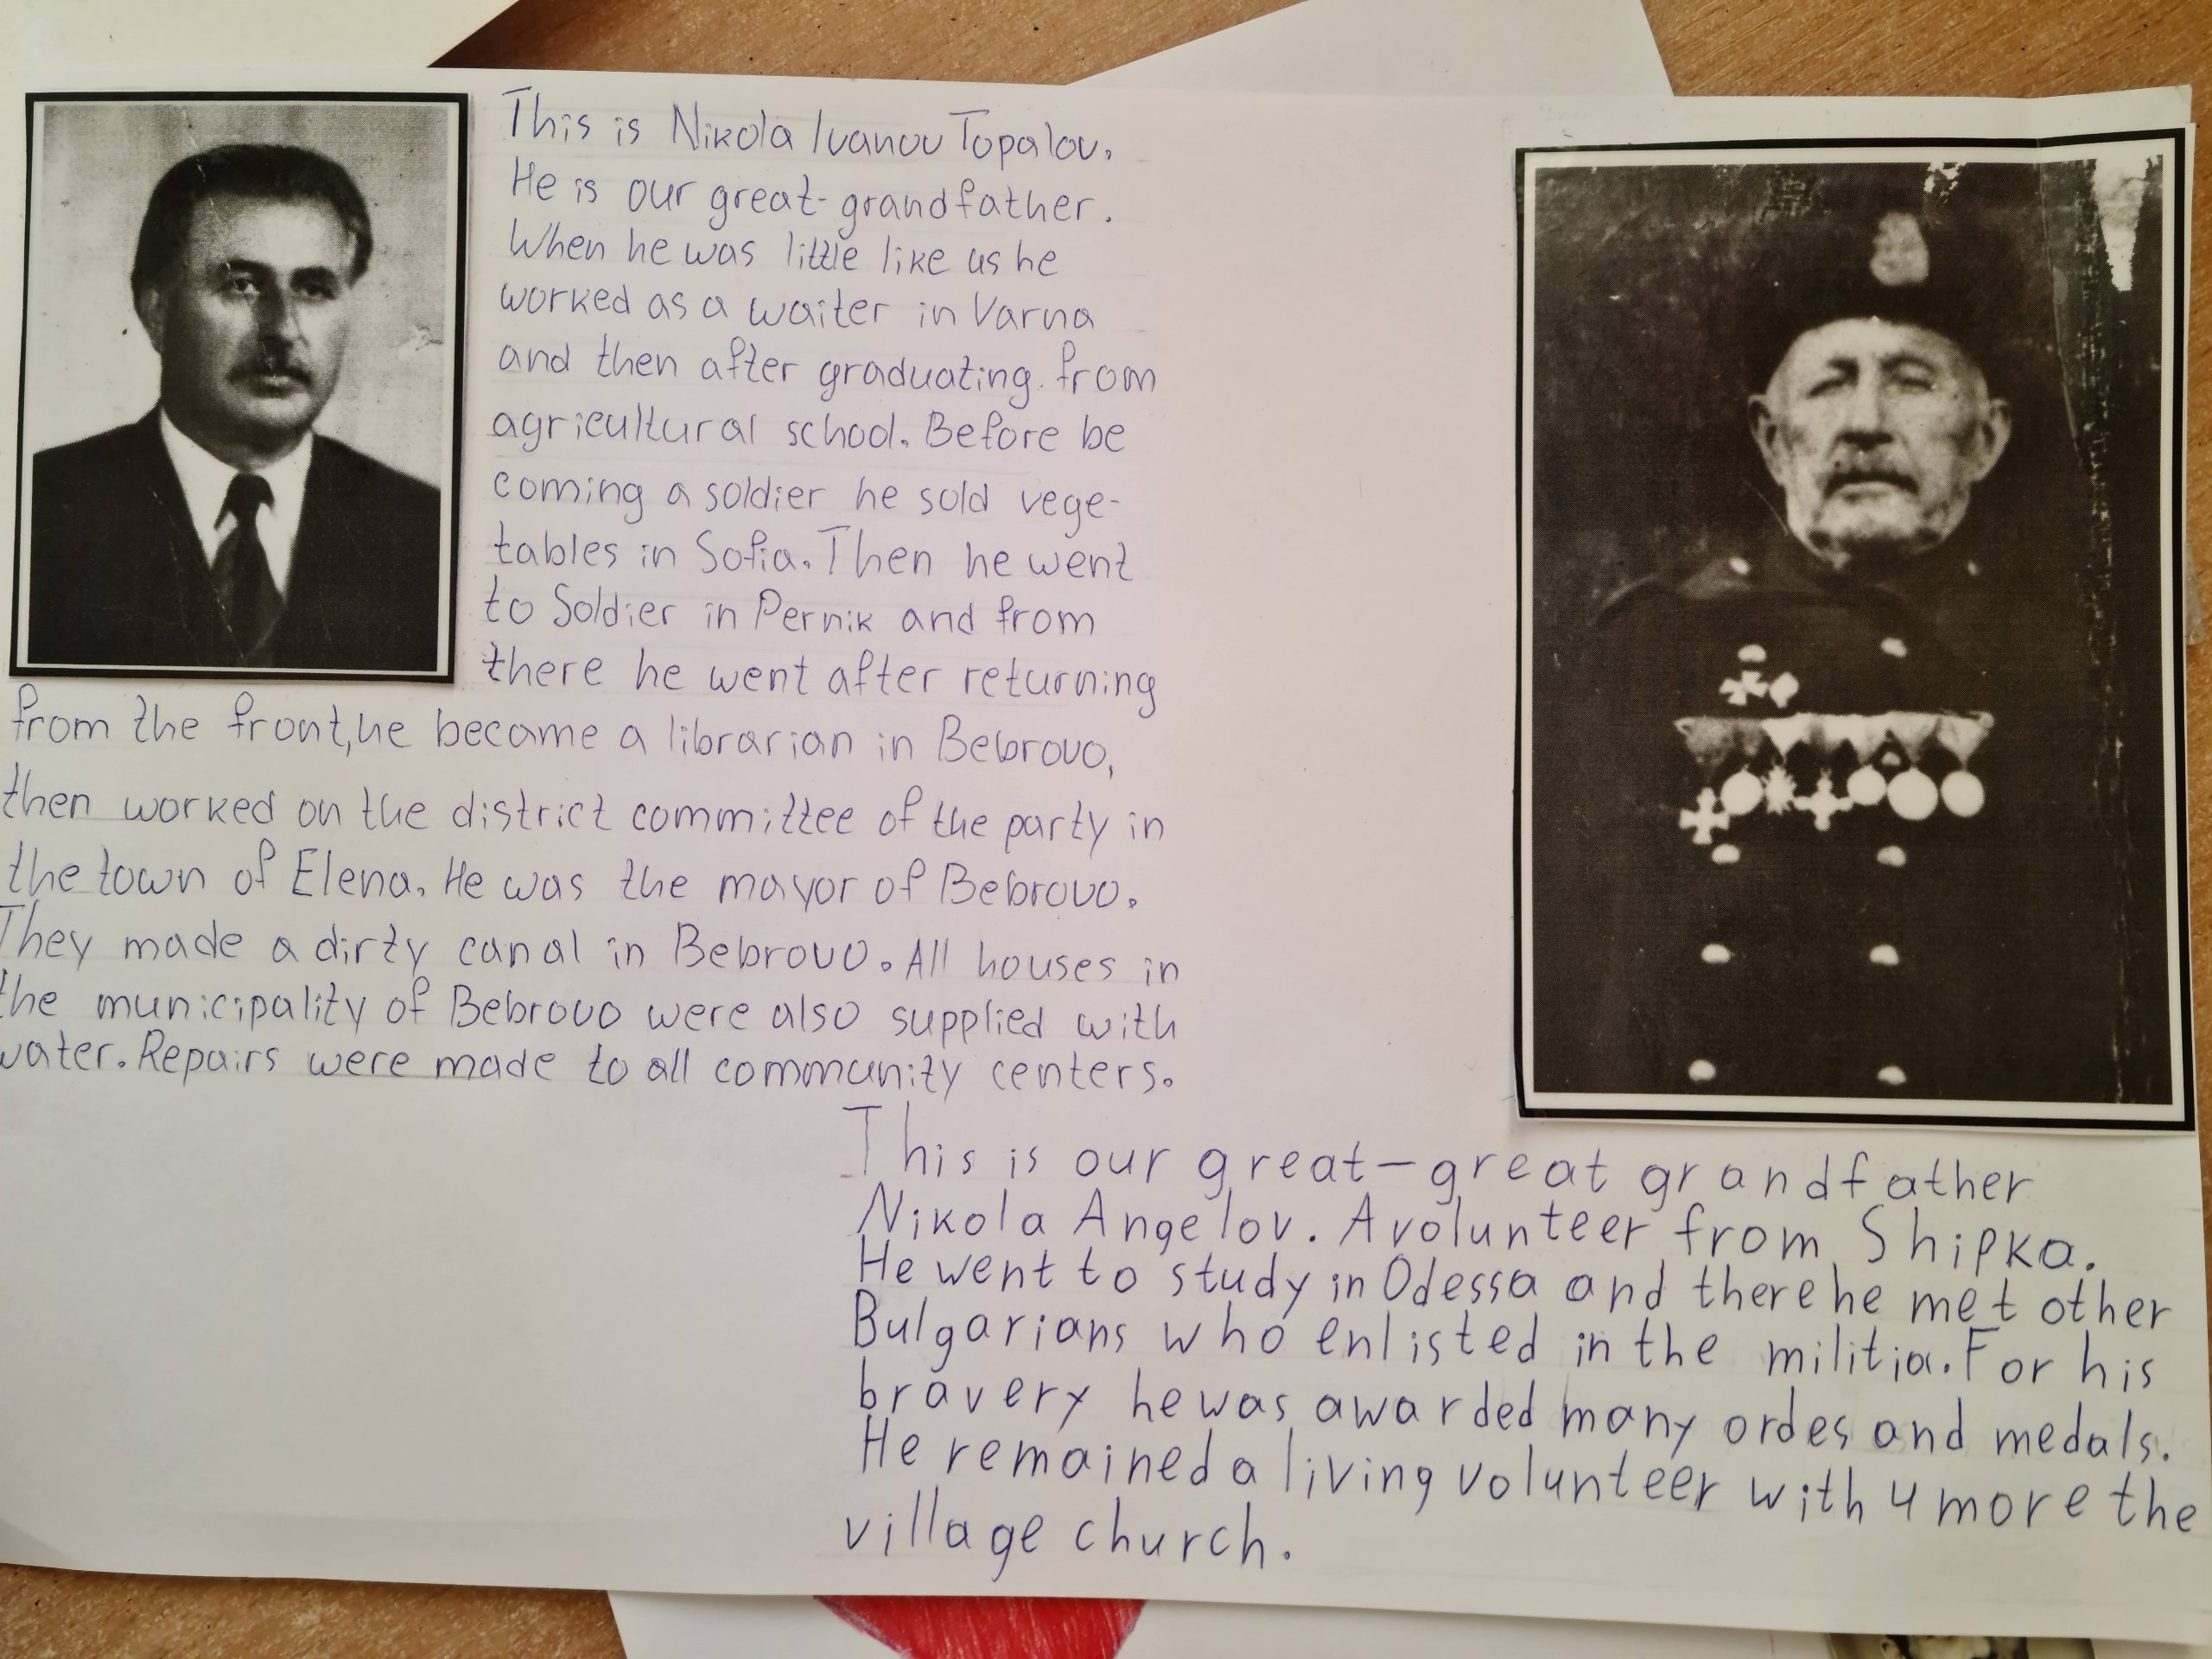 This is Nikola Ivanov Topalov.
He is our great-grandfather.
When he was little like us he
worked as a waiter in Varna
and then after graduating. from
agricultural school. Before be
coming a soldier he sold vege-
tables in Sofia. Then he went
to Soldier in Pernik and from
there he went after returning
from the front, he became a librarian in Bebrovo,
then worked on the district committee of the party in
the town of Elena. He was the mayor of Bebrovo.
They made a dirty canal in Bebrovo. All houses in
the municipality of Bebrovo were also supplied with
water. Repairs were made to all community centers.
This is our great-great grandfather
Nikola Angelov. A volunteer from Shipka.
He went to study in Odessa and there he met other
Bulgarians who enlisted in the militia. For his
bravery he was awarded many ordes and medals.
He remained a living volunteer with 4 more the
village church.